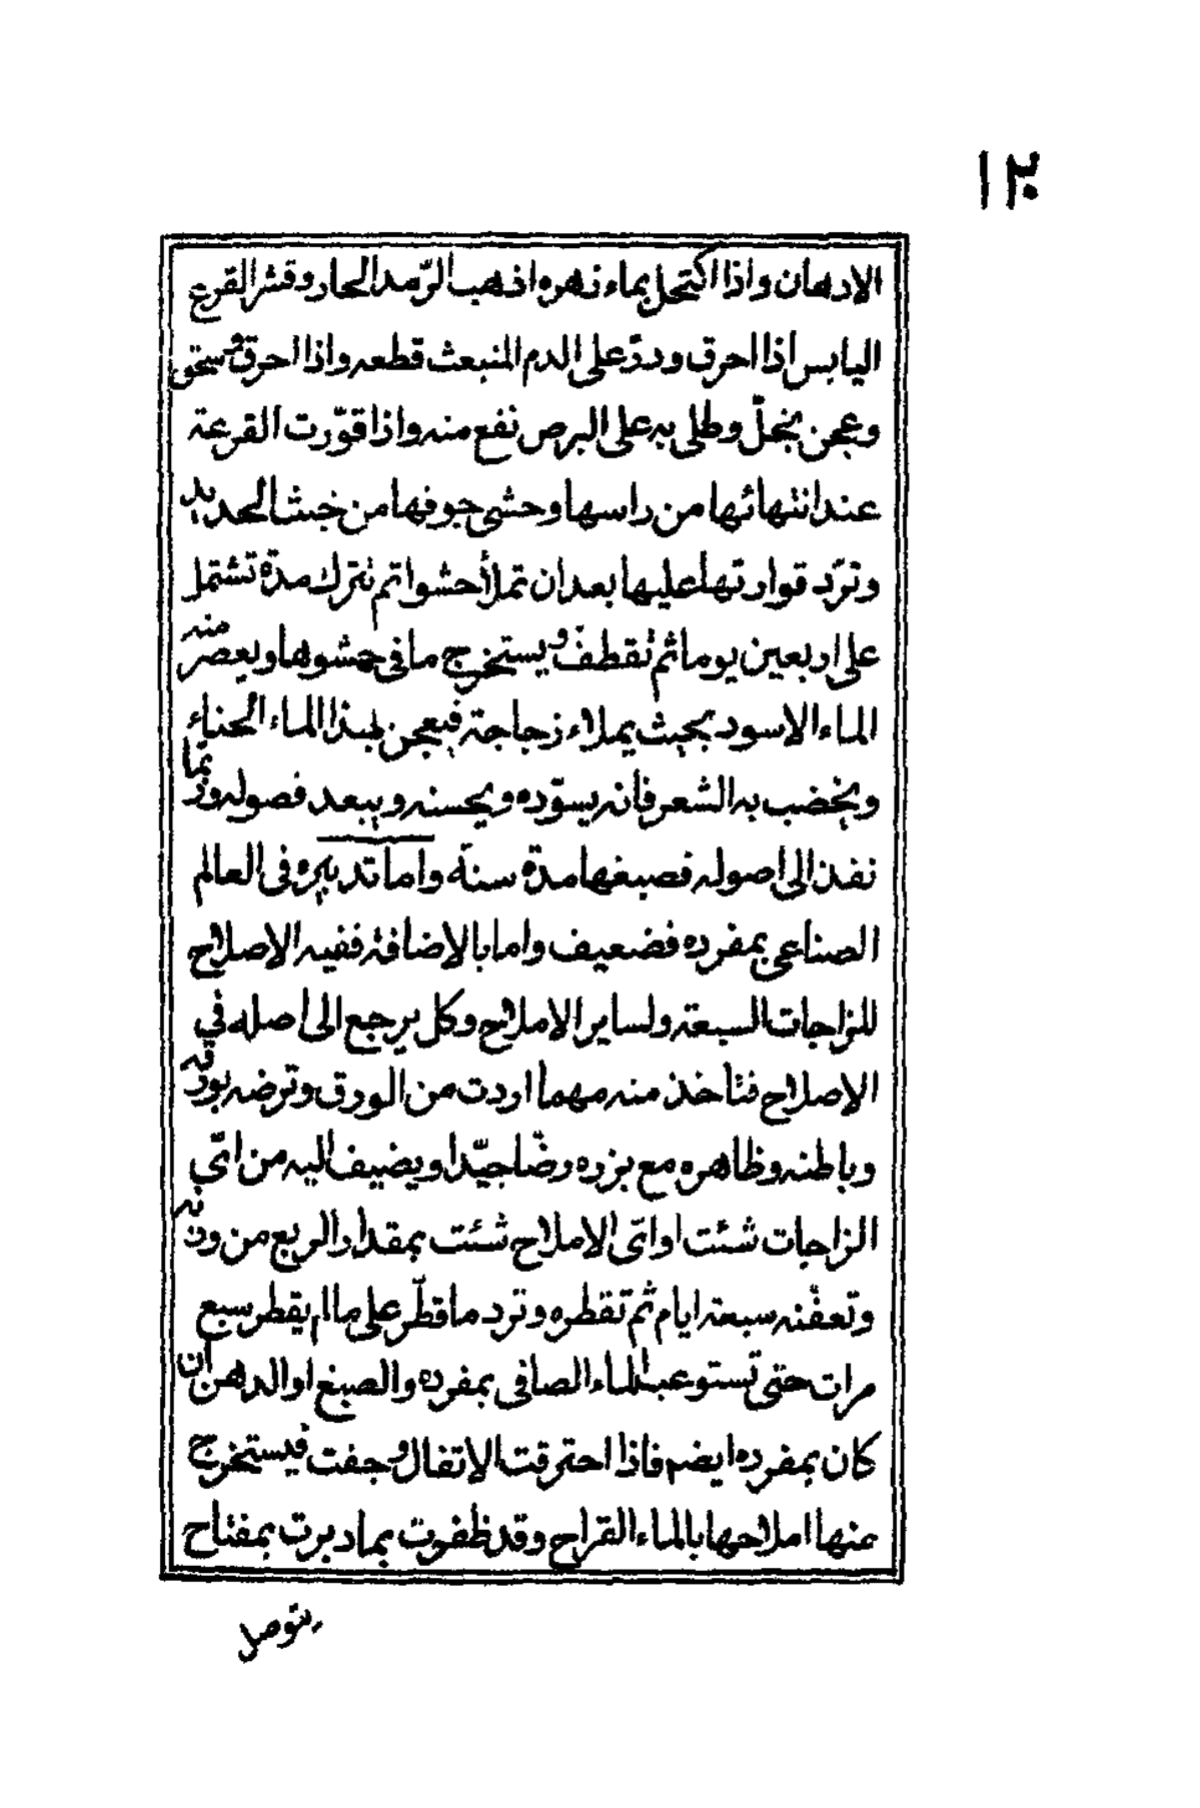 ١٣٠
الادهان واذا اكتحل بماء زهره اذهب الرّمد الحار وقشر القرع
اليابس اذا احرق وذرّ على الدم المنبعث قطعه واذا احرق وسحق
وعجن بخلّ وطلى به على البرص نفع منه واذا قوّرت القرعة
عند انتهائها من راسها وحشى جوفها من خبث الحديد
وتردّ قوارتها عليها بعد ان تملأ حشوا ثم تترك مدة تشتمل
على اربعين يوما ثم تقطف ويستخرج ما فى حشوها ويعصر منه
الماء الاسود بحيث يملاء زجاجة فيعجن بهذا الماء الحناء
ويخضب به الشعر فأنه يسوّده ويحسنه ويبعد فصوله وربما
نفذ الى اصوله فصبغها مدة سنة واما تدبيره فى العالم
الصناعى بمفرده فضعيف واما بالاضافة ففيه الاصلاح
للزاجات السبعة ولساير الاملاح وكل يرجع الى اصله في
الاصلاح فتأخذ منه مهما اردت من الورق وترضه بورقه
وباطنه وظاهره مع بزره رضّا جيّدا ويضيف اليه من اىّ
الزاجات شئت او اىّ الاملاح شئت بمقدار الربع من وزنه
وتعفّنه سبعة ايام ثم تقطره وترد ما قطّر على ما لم يقطر سبع
مرات حتى تستوعب الماء الصافى بمفرده والصبغ او الدهن ان
كان بمفرده ايضم فاذا احترقت الاتفال وجفت فيستخرج
عنها املاحها بالماء القراح وقد ظفرت بما دبرت بمفتاح
يتوصل